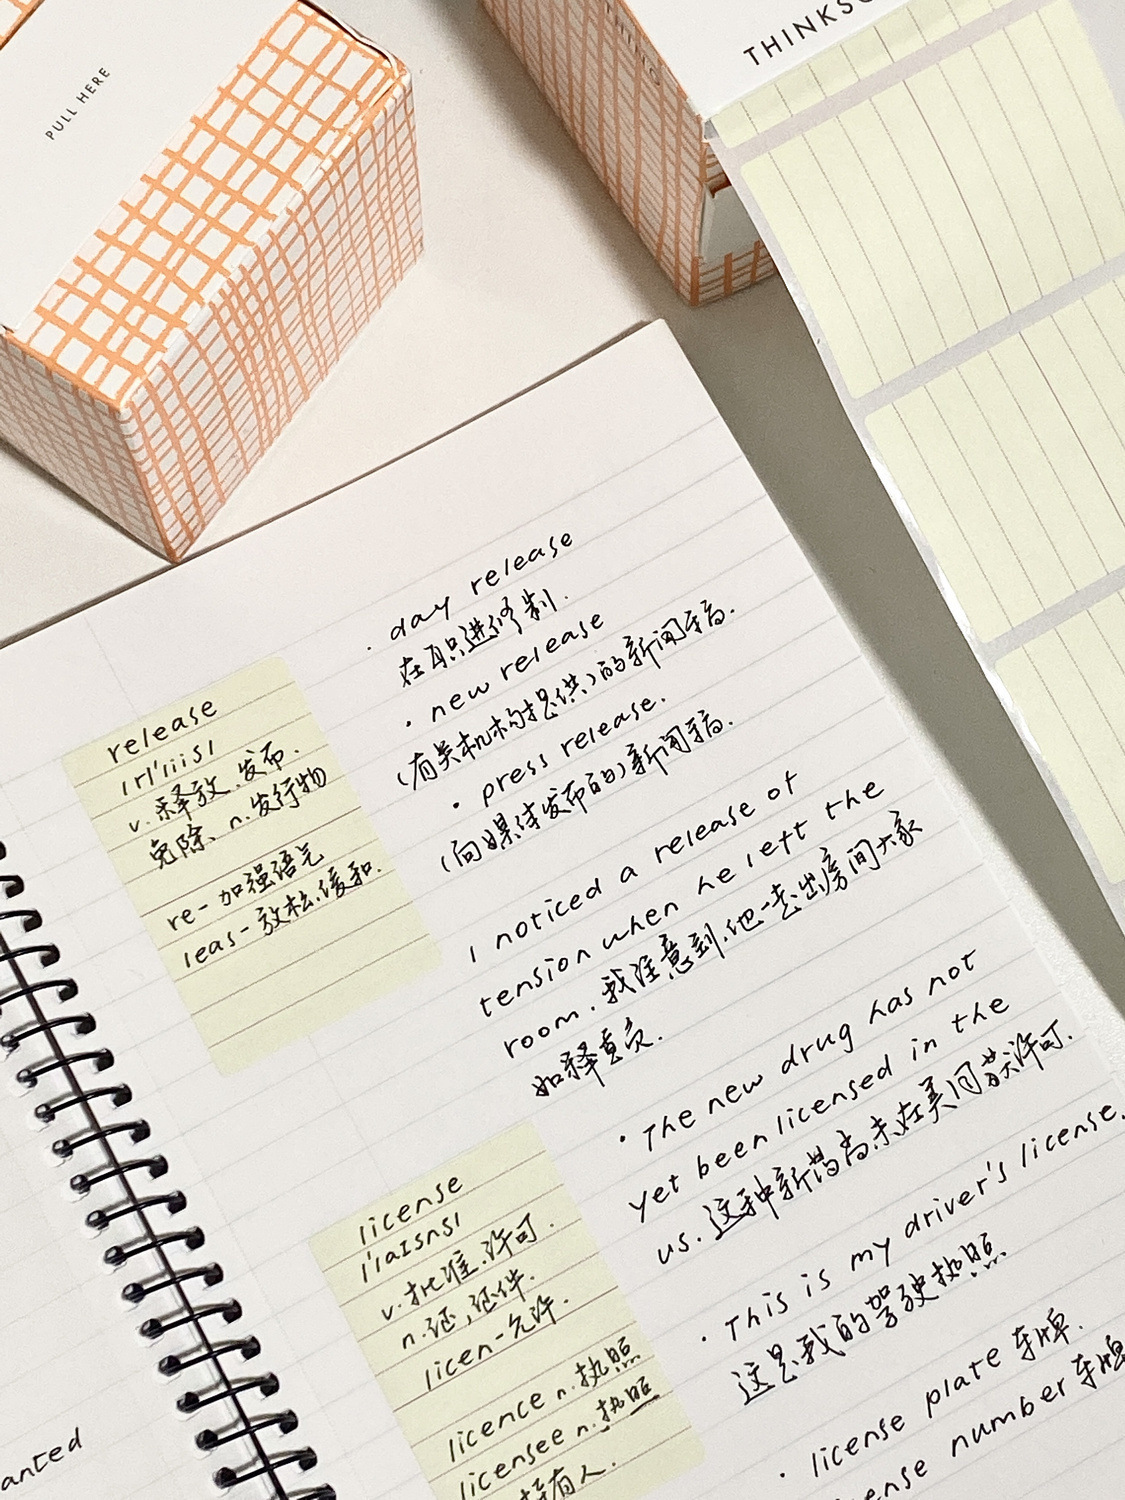 PULL HERE
THINKS
· day release
在职进修制.
· new release
(有关机构提供)的新闻稿.
· press release.
(向媒体发布的)新闻稿.
release
/rɪ'liːs/
v.释放.发布.
免除、n.发行物
re-加强语气
leas-放松.缓和.
I noticed a release of
tension when he left the
room. 我注意到.他一走出房间大家
如释重负.
license
/'laɪsns/
v.批准.许可.
n.证,证件.
licen-允许.
licence n.执照
licensee n.执照
持有人.
· The new drug has not
yet been licensed in the
us. 这种新药尚未在美国获许可.
· This is my driver's license.
这是我的驾驶执照
· license plate 车牌.
ense number 车牌
anted